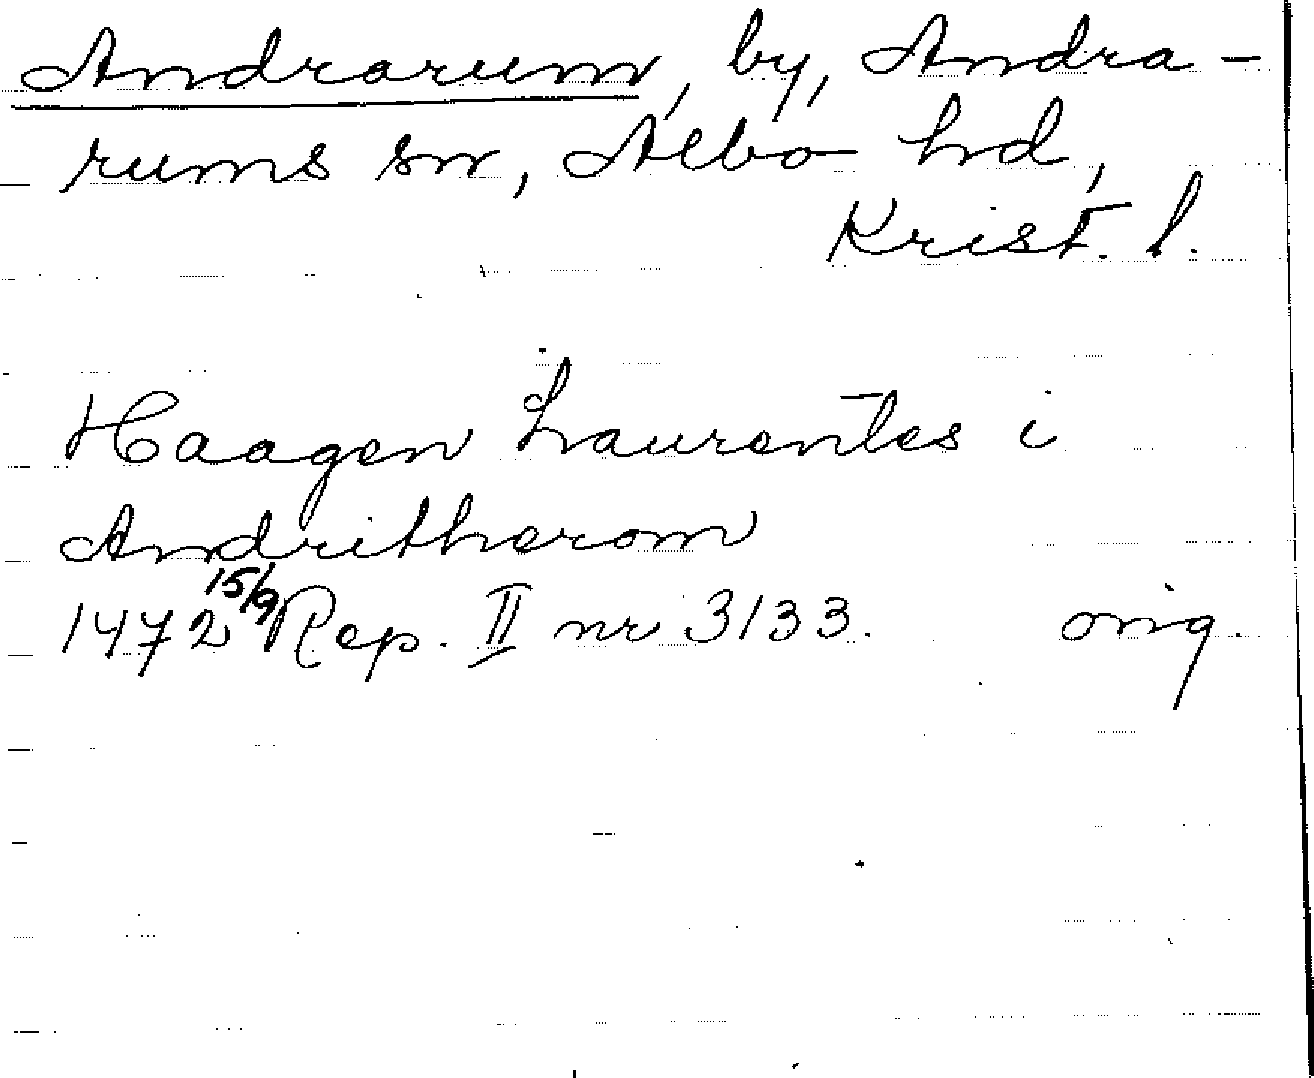 Andrarum, by, Andra-
rums sn, Albo hd,
Krist. l.
Haagen Laurentes i
Andritherom
1472 15/9 Rep. II nr 3133. orig.